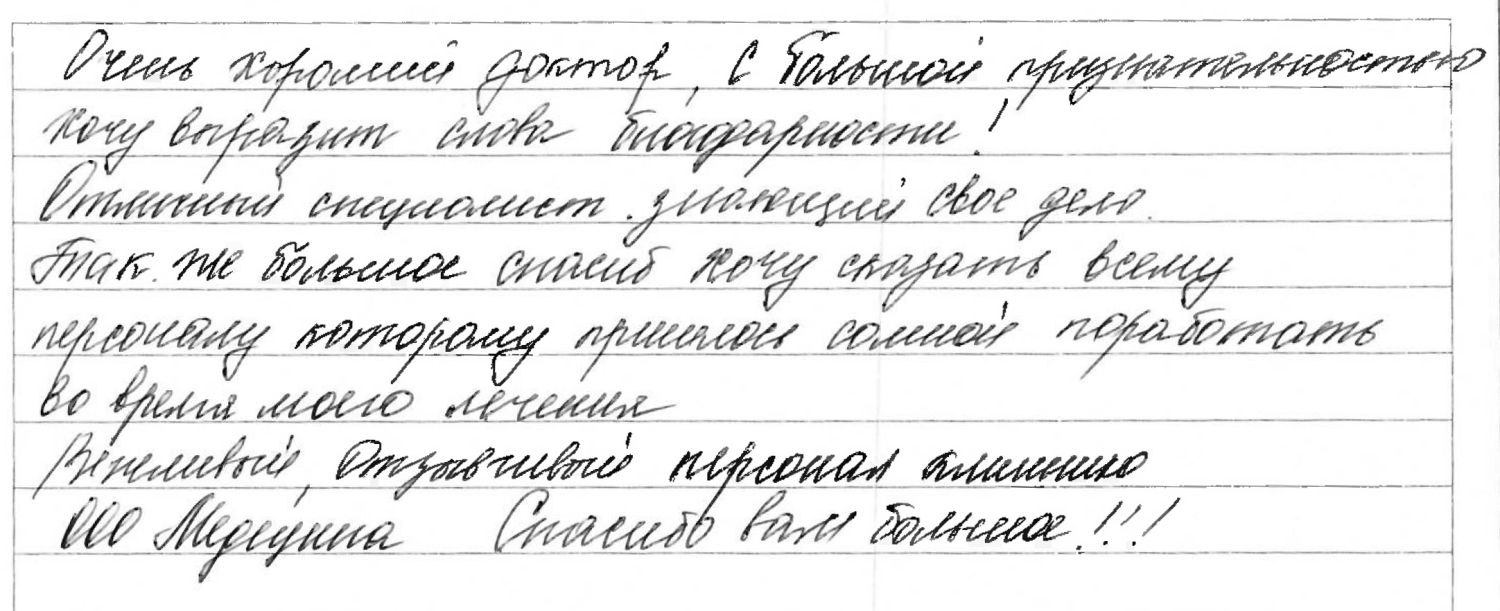 Очень хороший доктор, С большой признательностью
хочу выразит слова благодарности!
Отличный специалист. знающий свое дело.
Так. же большое спасиб хочу сказать всему
персоналу которому пришлось сомной поработать
во время моего лечения
Вежливый, Отзывчивый персонал клиники
ООО Медецина Спасибо вам большое!!!